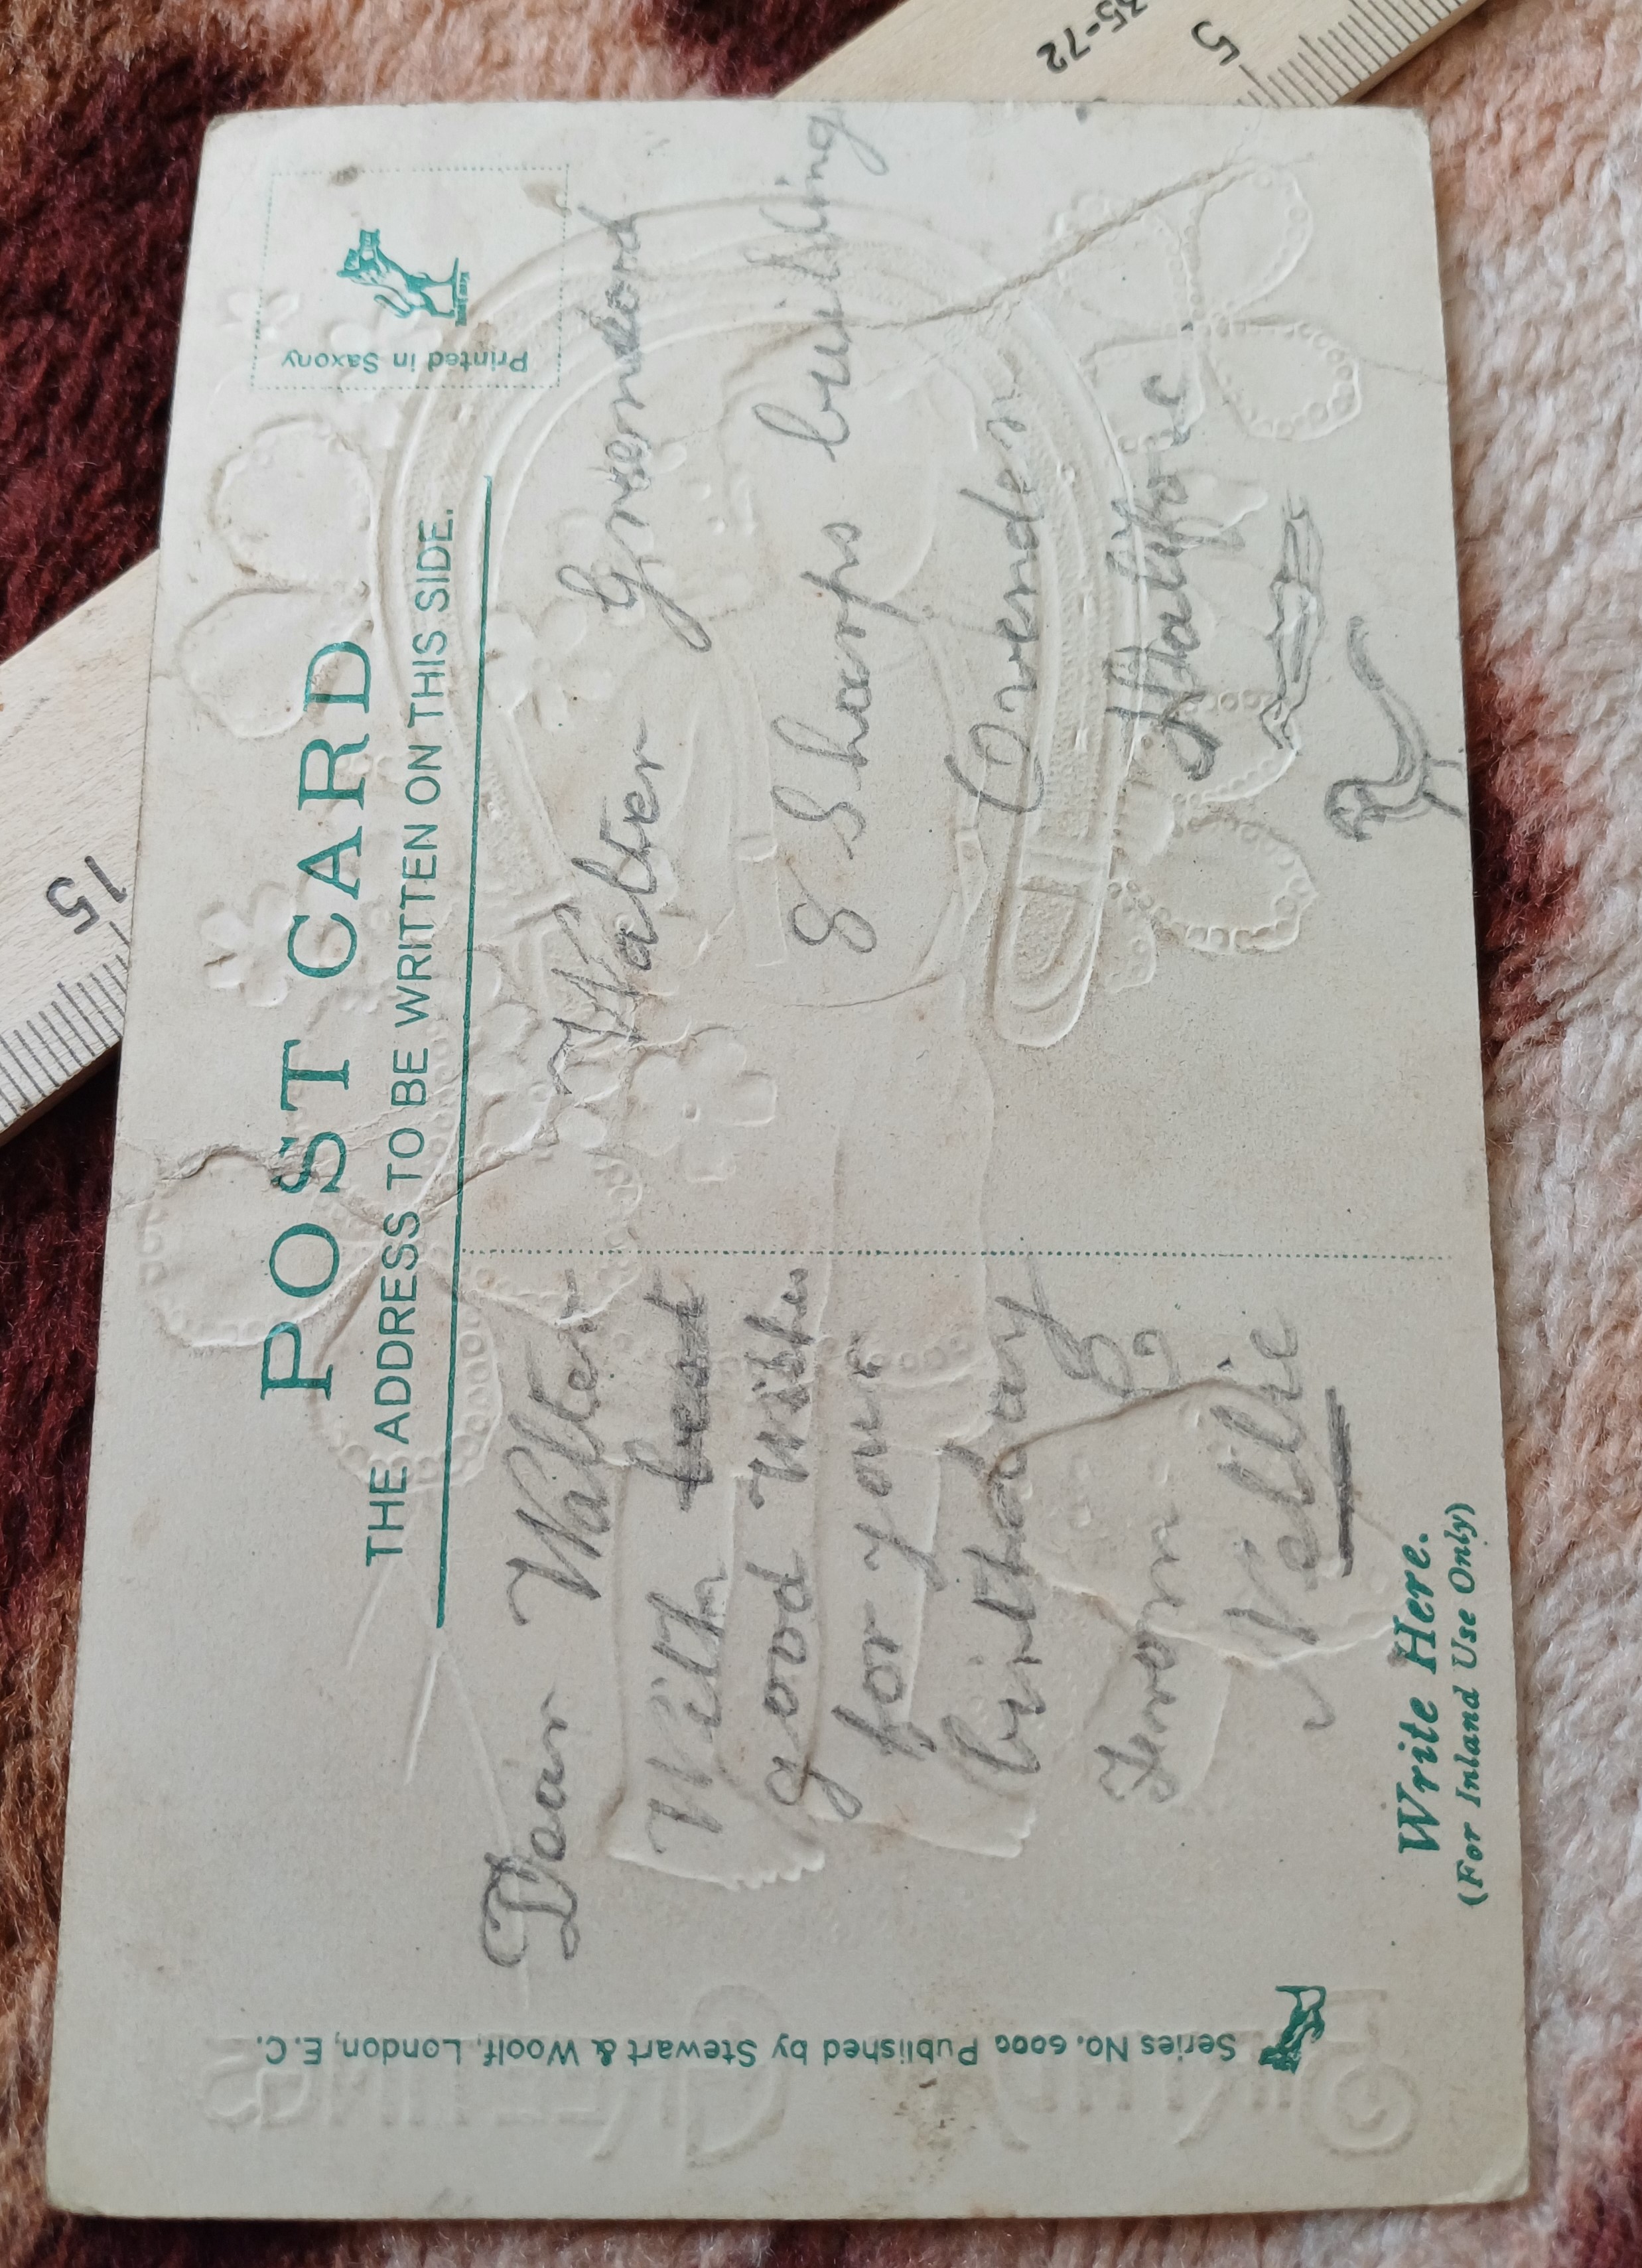 POST CARD
THE ADDRESS TO BE WRITTEN ON THIS SIDE.
Printed in Saxony
Dear Walter
With best
good wishes
for your
birthday
From
Nellie
Walter Greenwood
8 Sharps building
Ovenden
Halifax
Write Here.
(For Inland Use Only)
Series No. 6000 Published by Stewart & Woolf, London, E.C.
BIRTHDAY GREETINGS
15
5
35-72